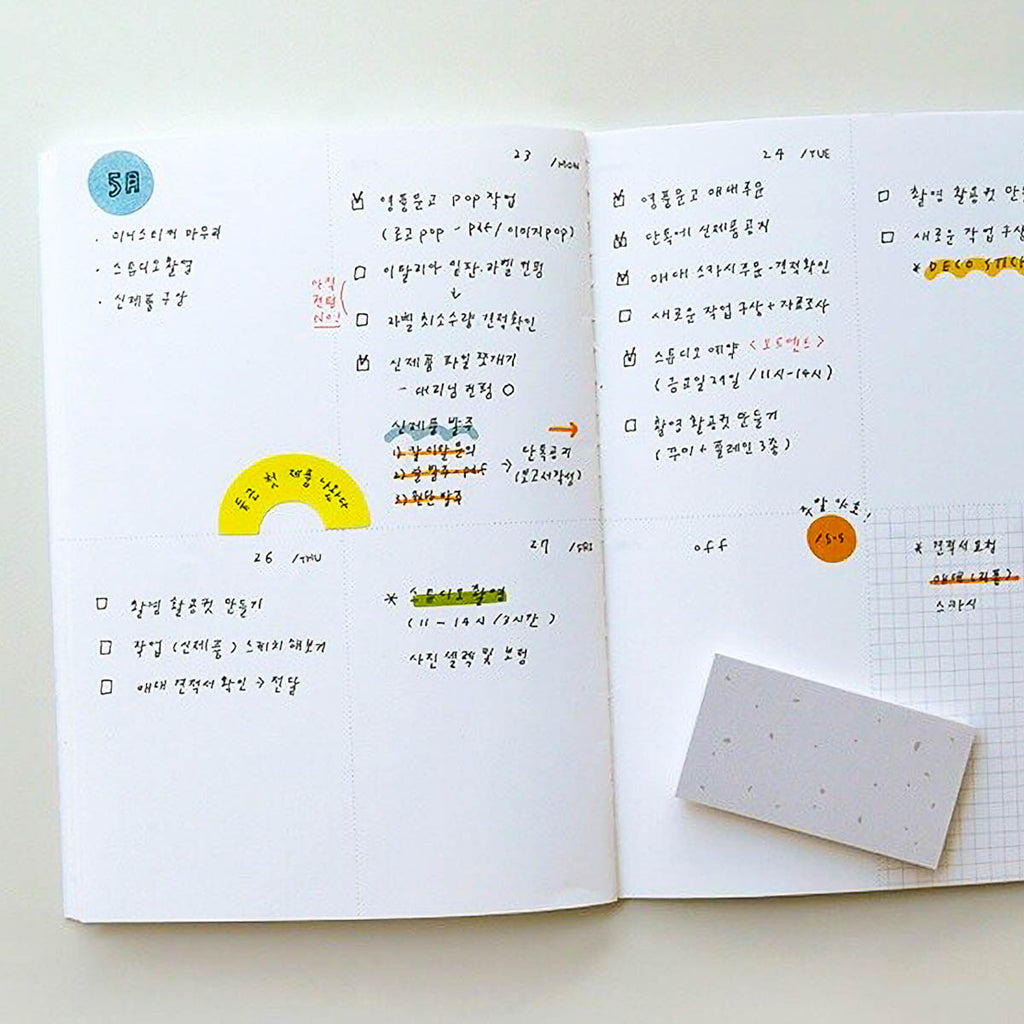 5月
· 미니스티커 마무리
· 스튜디오촬영
· 신제품 구상
23 /MON
영풍문고 pop 작업
(로고 pop - pdf / 이미지 pop)
이탈리아 원단·라벨 컨펌
↓
아직
컨펌
NO!
라벨 최소수량 견적확인
신제품 파일 쪼개기
- 대리님 컨펌 ○
신제품 발주
→
1)
문의
2) 발주 - pdf
3) 원단 발주
→ 단톡공지
(보고서작성)
첫 제품 나왔다
24 /TUE
영풍문고 매대주문
단톡에 신제품공지
매대 스카시주문·견적확인
새로운 작업 구상 + 자료조사
스튜디오 예약 <보드엔드>
(금요일 27일 / 11시-14시)
촬영 활용컷 만들기
(무지 + 플레인 3종)
촬영 활용컷 만
새로운 작업 구상
* DECO STICK
26 /THU
촬영 활용컷 만들기
작업 (신제품) 스케치 해보기
매대 견적서 확인 → 전달
27 /FRI
* 스튜디오 촬영
(11 - 14시 / 3시간)
사진 셀렉 및 보정
off
* 견적서 요청
스카시